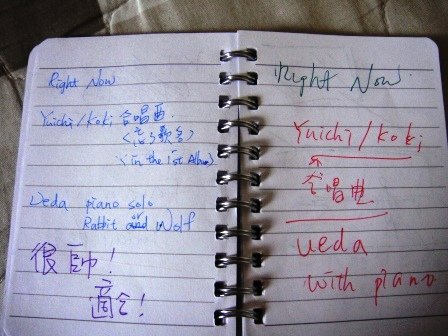 Right Now
Yuichi/Koki 合唱曲
<忘了歌名>
(in the 1st Album)
Ueda piano solo
Rabbit and Wolf
很帥!
適合!
Right Now
Yuichi/Koki
の
合唱曲
ueda
with piano